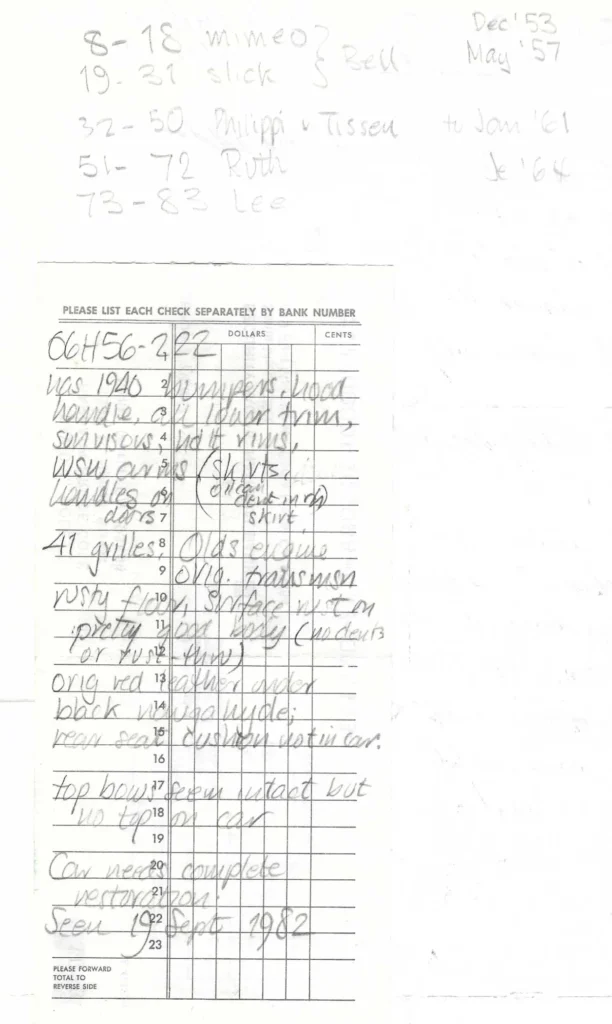 8-18 mimeo } Bell Dec '53
19-31 slick } May '57
32-50 Philippi & Tissen to Jan '61
51-72 Ruth Je '64
73-83 Lee
PLEASE LIST EACH CHECK SEPARATELY BY BANK NUMBER
DOLLARS CENTS
06H56-222
has 1940 2 bumpers, hood
handle, 3 all lower trim,
sun visors, 4 rims,
WSW 5 (skirts,
handles on 6 dent in rh
doors 7 skirt)
41 grilles, 8 Olds engine
9 orig. transmsn
rusty floor, 10 surface rust on
pretty 11 good body (no dents
or rust-12 thru)
orig red 13 leather under
black 14 naugahyde;
rear seat 15 cushion not in car.
16
top bows 17 seem intact but
no top 18 on car
19
Car needs 20 complete
restoration. 21
Seen 19 22 Sept 1982
23
PLEASE FORWARD
TOTAL TO
REVERSE SIDE